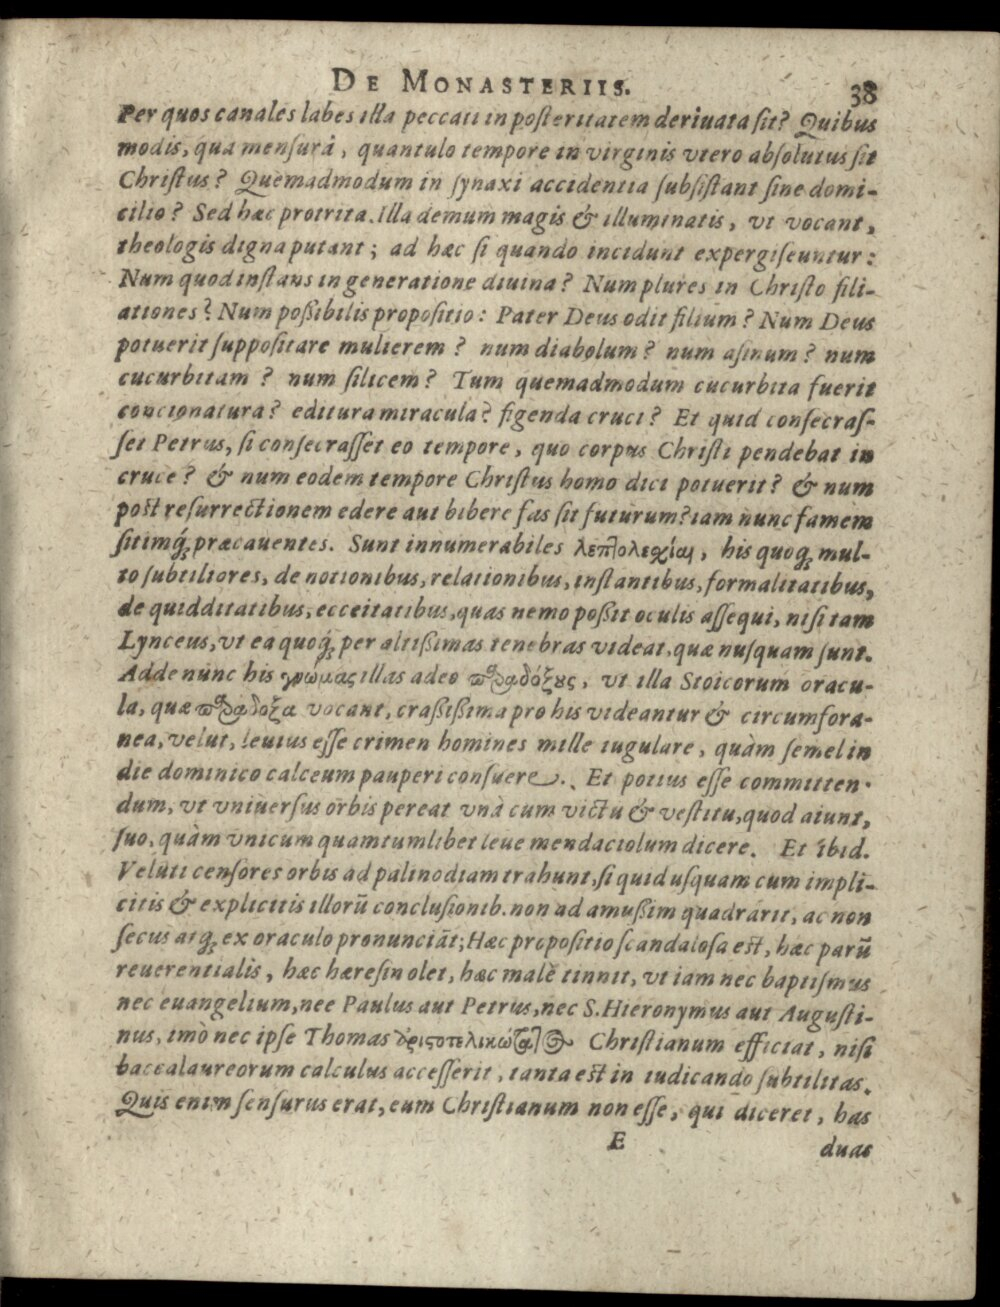 DE MONASTERIIS.
38
Per quos canales labes illa peccati in posteritatem deriuata sit? Quibus
modis, qua mensurâ, quantulo tempore in virginis vtero absolutus sit
Christus? Quemadmodum in synaxi accidentia subsistant sine domi-
cilio? Sed hæc protrita. Illa demum magis & illuminatis, vt vocant,
theologis digna putant; ad hæc si quando incidunt expergiseuntur:
Num quod instans in generatione diuina? Num plures in Christo fili-
ationes? Num poßibilis propositio: Pater Deus odit filium? Num Deus
potuerit suppositare mulierem? num diabolum? num asinum? num
cucurbitam? num silicem? Tum quemadmodum cucurbita fuerit
concionatura? editura miracula? figenda cruci? Et quid consecras-
set Petrus, si consecrasset eo tempore, quo corpus Christi pendebat in
cruce? & num eodem tempore Christus homo dici potuerit? & num
post resurrectionem edere aut bibere fas sit futurum? iam nunc famem
sitimq́; præcauentes. Sunt innumerabiles λεπτολεχίαι, his quoq; mul-
to subtiliores, de notionibus, relationibus, instantibus, formalitatibus,
de quidditatibus, ecceitatibus, quas nemo poßit oculis assequi, nisi tam
Lynceus, vt ea quoq́; per altißimas tenebras videat, quæ nusquam sunt.
Adde nunc his γνώμας illas adeo παραδόξους, vt illa Stoicorum oracu-
la, quæ παράδοξα vocant, craßißima pro his videantur & circumfora-
nea, velut, leuius esse crimen homines mille iugulare, quàm semel in
die dominico calceum pauperi consuere. Et potius esse committen-
dum, vt vniuersus orbis pereat vnà cum victu & vestitu, quod aiunt,
suo, quàm vnicum quamtumlibet leue mendaciolum dicere. Et ibid.
Veluti censores orbis ad palinodiam trahunt, si quid usquam cum impli-
citis & explicitis illorū conclusionib. non ad amußim quadrârit, ac non
secus atq; ex oraculo pronunciāt; Hæc propositio scandalosa est, hæc parū
reuerentialis, hæc hæresin olet, hæc malè tinnit, vt iam nec baptismus
nec euangelium, nee Paulus aut Petrus, nec S. Hieronymus aut Augusti-
nus, imò nec ipse Thomas ἀριστοτελικώτατος Christianum efficiat, nisi
baccalaureorum calculus accesserit, tanta est in iudicando subtilitas.
Quis enim sensurus erat, eum Christianum non esse, qui diceret, has
E
duas